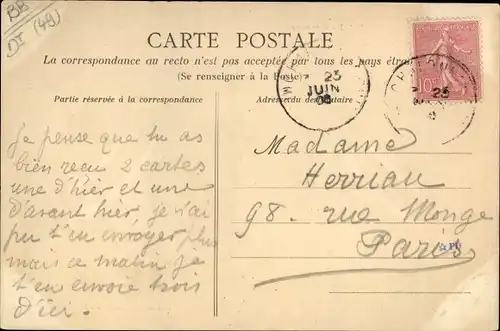 BB
DI (49)
CARTE POSTALE
La correspondance au recto n'est pas acceptée par tous les pays étra
(Se renseigner à la Poste)
Partie réservée à la correspondance
Adresse du destinataire
10
23
JUIN
23
Je pense que tu as
bien reçu 2 cartes
une d'hier et une
d'avant hier, je n'ai
pu t'en envoyer plus
mais ce matin je
t'en envoie trois
d'ici.
Madame
Herriau
98. rue Monge
Paris